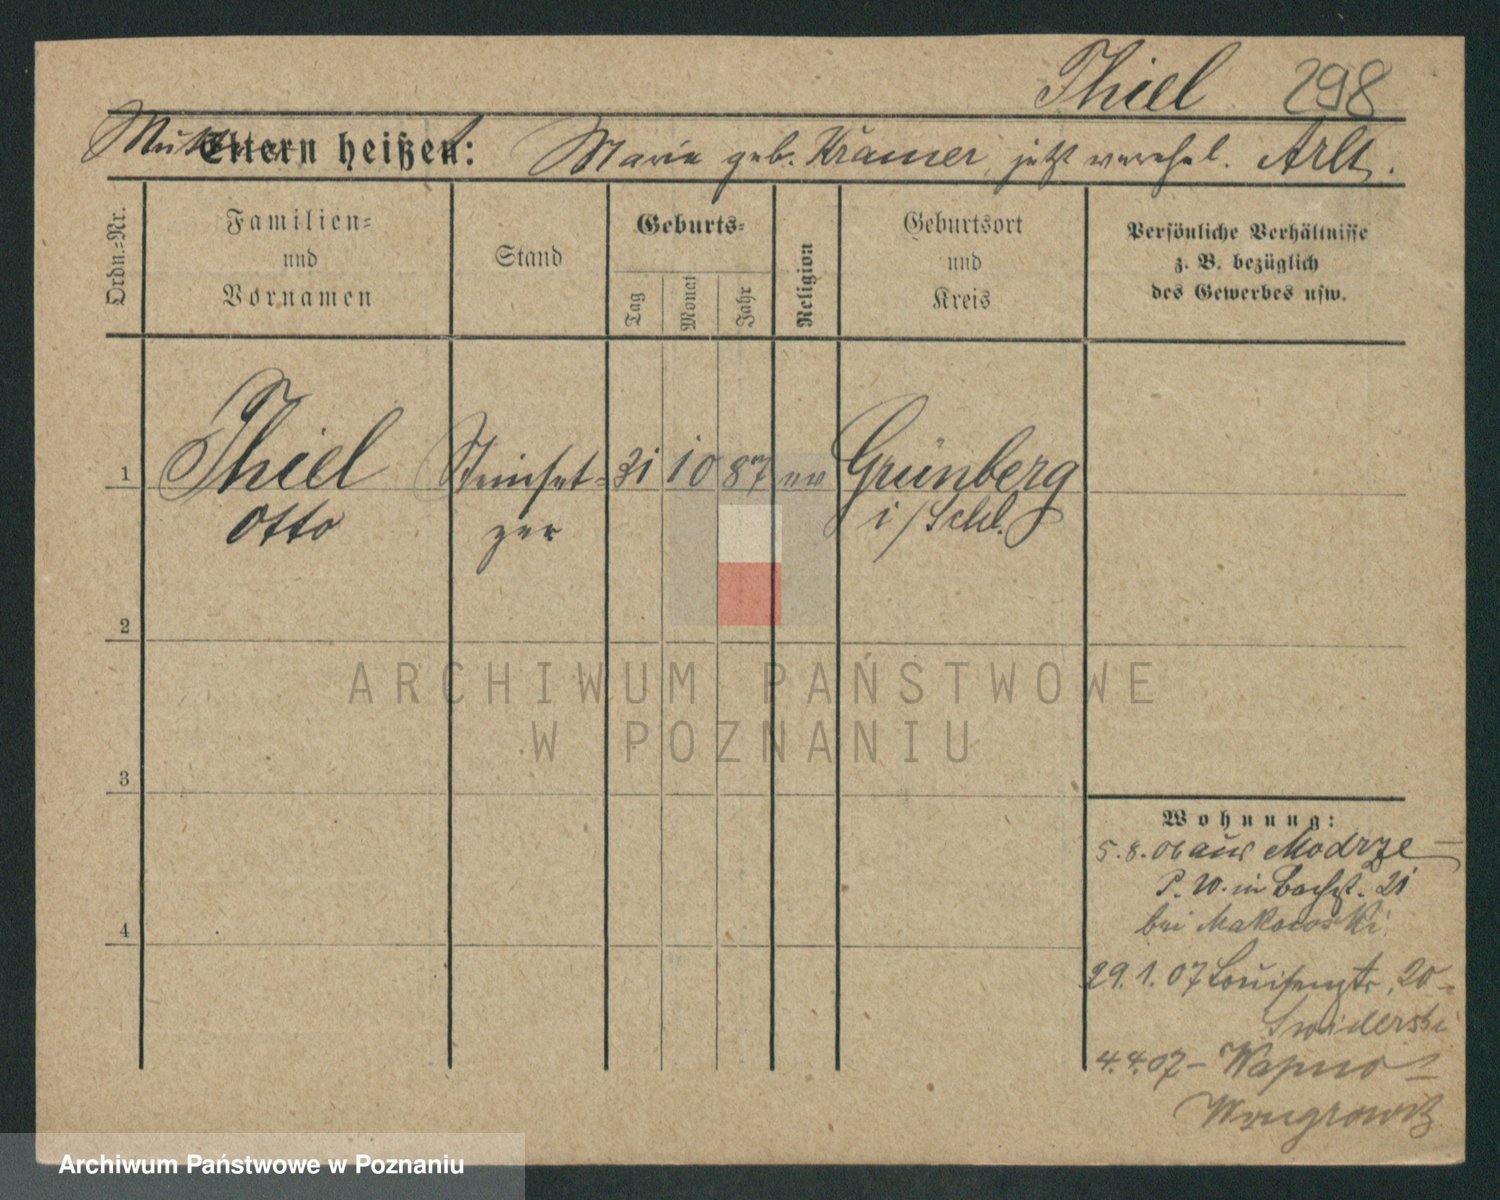 Thiel 298
Mutter Eltern heißen: Marie geb. Krämer, jetzt verehel. Arlt.
Ordn.=Nr.
Familien=
und
Vornamen
Stand
Geburts=
Tag
Monat
Jahr
Religion
Geburtsort
und
Kreis
Persönliche Verhältnisse
z. B. bezüglich
des Gewerbes usw.
1 Thiel Steinset= 31 10 87 ev Grünberg
Otto zer i/Schl.
2
3
4
Wohnung:
5.8.06 aus Modrze
P. W. in Bachst. 21
bei Makowski
29.1.07 Louisenstr. 20
Swiderski
4.4.07 - Wapno -
Wongrowitz
ARCHIWUM PAŃSTWOWE
W POZNANIU
Archiwum Państwowe w Poznaniu